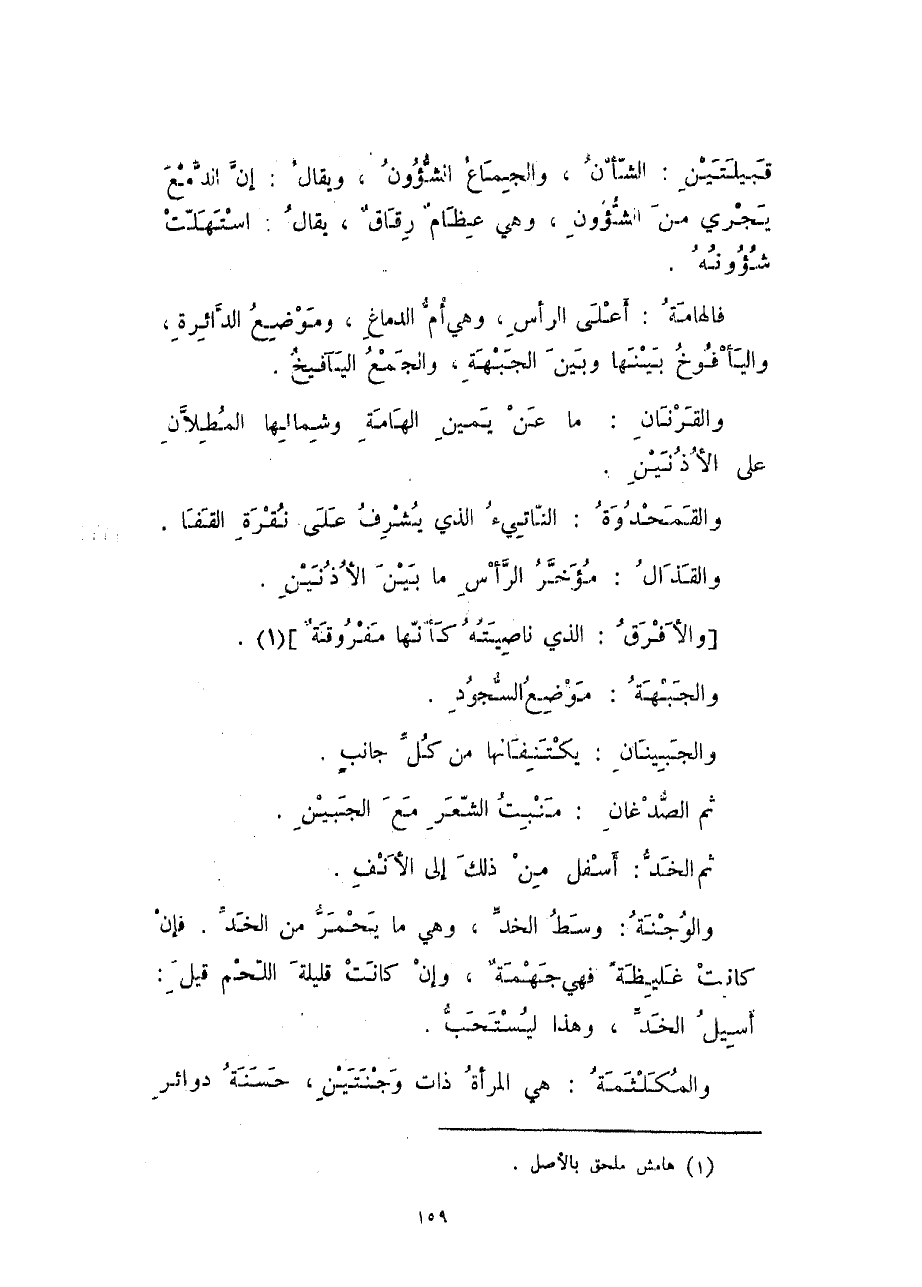 قَبِيلَتَيْنِ : الشَّأنُ ، والجِمَاعُ الشُّؤُونُ ، ويقالُ : إنَّ الدَّمْعَ
يَجْرِي مِنَ الشُّؤُونِ ، وهي عِظَامٌ رِقَاقٌ ، يقالُ : اسْتَهَلَّتْ
شُؤُونُهُ .
فالهامَةُ : أَعْلَى الرأسِ ، وهي أُمُّ الدماغِ ، ومَوْضِعُ الدَّائِرةِ ،
واليَأْفُوخُ بَيْنَها وبَينَ الجَبْهَةِ ، والجَمْعُ اليَآفِيخُ .
والقَرْنَانِ : ما عَنْ يَمِينِ الهَامَةِ وشِمالِها المُطِلاَّنِ
على الأُذُنَيْنِ .
والقَمَحْدُوَةُ : النّاتِيءُ الذي يُشْرِفُ عَلَى نُقْرَةِ القَفَا .
والقَذَالُ : مُؤَخَّرُ الرَّأْسِ ما بَيْنَ الأُذُنَيْنِ .
[والأَفْرَقُ : الذي ناصِيَتُهُ كَأَنّها مَفْرُوقَةٌ](١) .
والجَبْهَةُ : مَوْضِعُ السُّجُودِ .
والجَبِينَانِ : يكْتَنِفَانِها من كُلِّ جانبٍ .
ثم الصُّدْغانِ : مَنْبِتُ الشَّعَرِ مَعَ الجَبِيْنِ .
ثم الخَدُّ : أَسْفل مِنْ ذلكَ إلى الأَنْفِ .
والوُجْنَةُ : وسَطُ الخدِّ ، وهي ما يَحْمَرُّ من الخَدِّ . فإنْ
كانتْ غَلِيظَةً فهي جَهْمَةٌ ، وإنْ كانَتْ قليلةَ اللّحْمِ قيلَ :
أسيلُ الخَدِّ ، وهذا ليُسْتَحَبُّ .
والمُكَلْثَمَةُ : هي المرأةُ ذات وَجْنَتَيْنِ ، حَسَنَةُ دوائرِ
(١) هامش ملحق بالأصل .
١٥٩